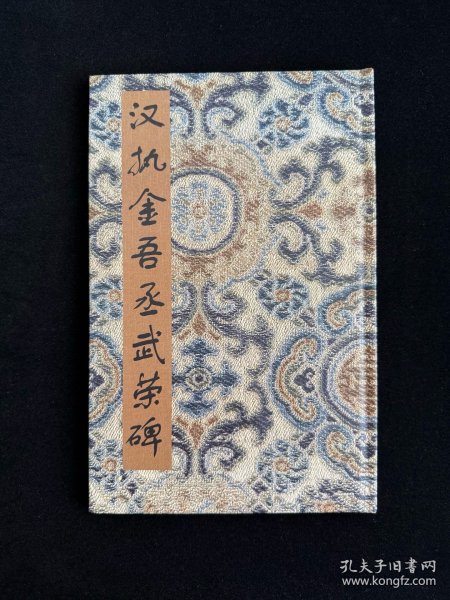 汉执金吾丞武荣碑
孔夫子旧书网
www.kongfz.com